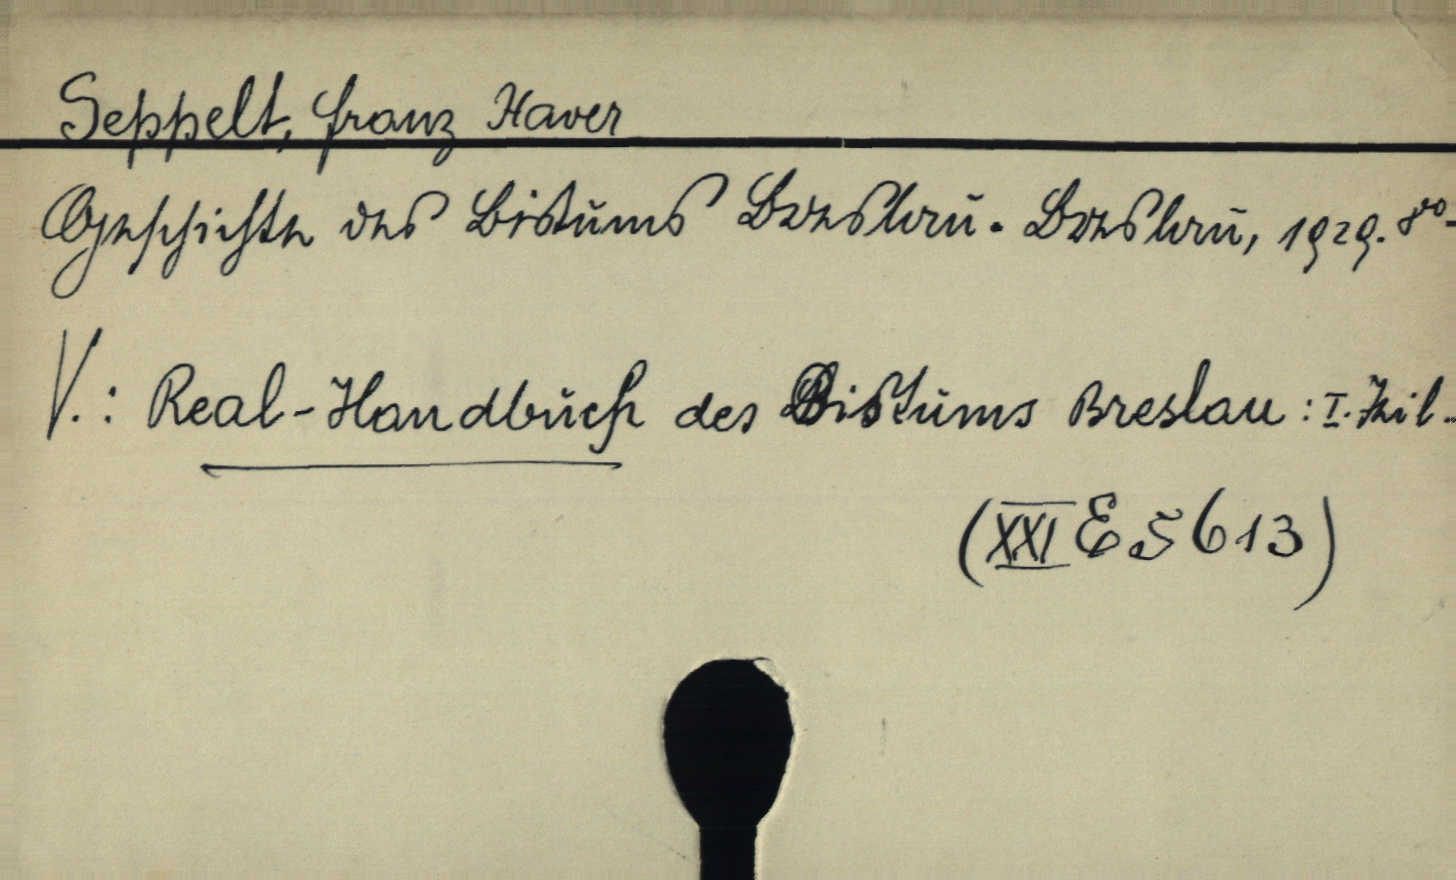 Seppelt, Franz Xaver
Geschichte des Bistums Breslau. Breslau, 1929. 8vo.
V.: Real-Handbuch des Bistums Breslau: I. Teil.
(XXI E 5613)